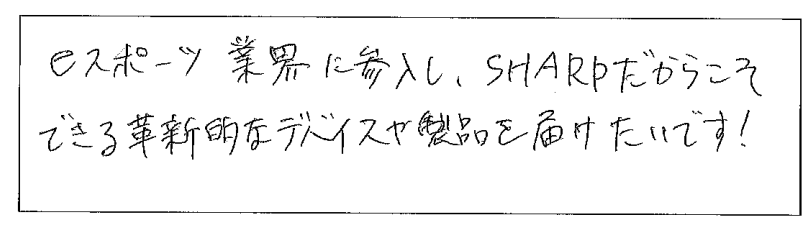 eスポーツ業界に参入し、SHARPだからこそ
できる革新的なデバイスや製品を届けたいです!